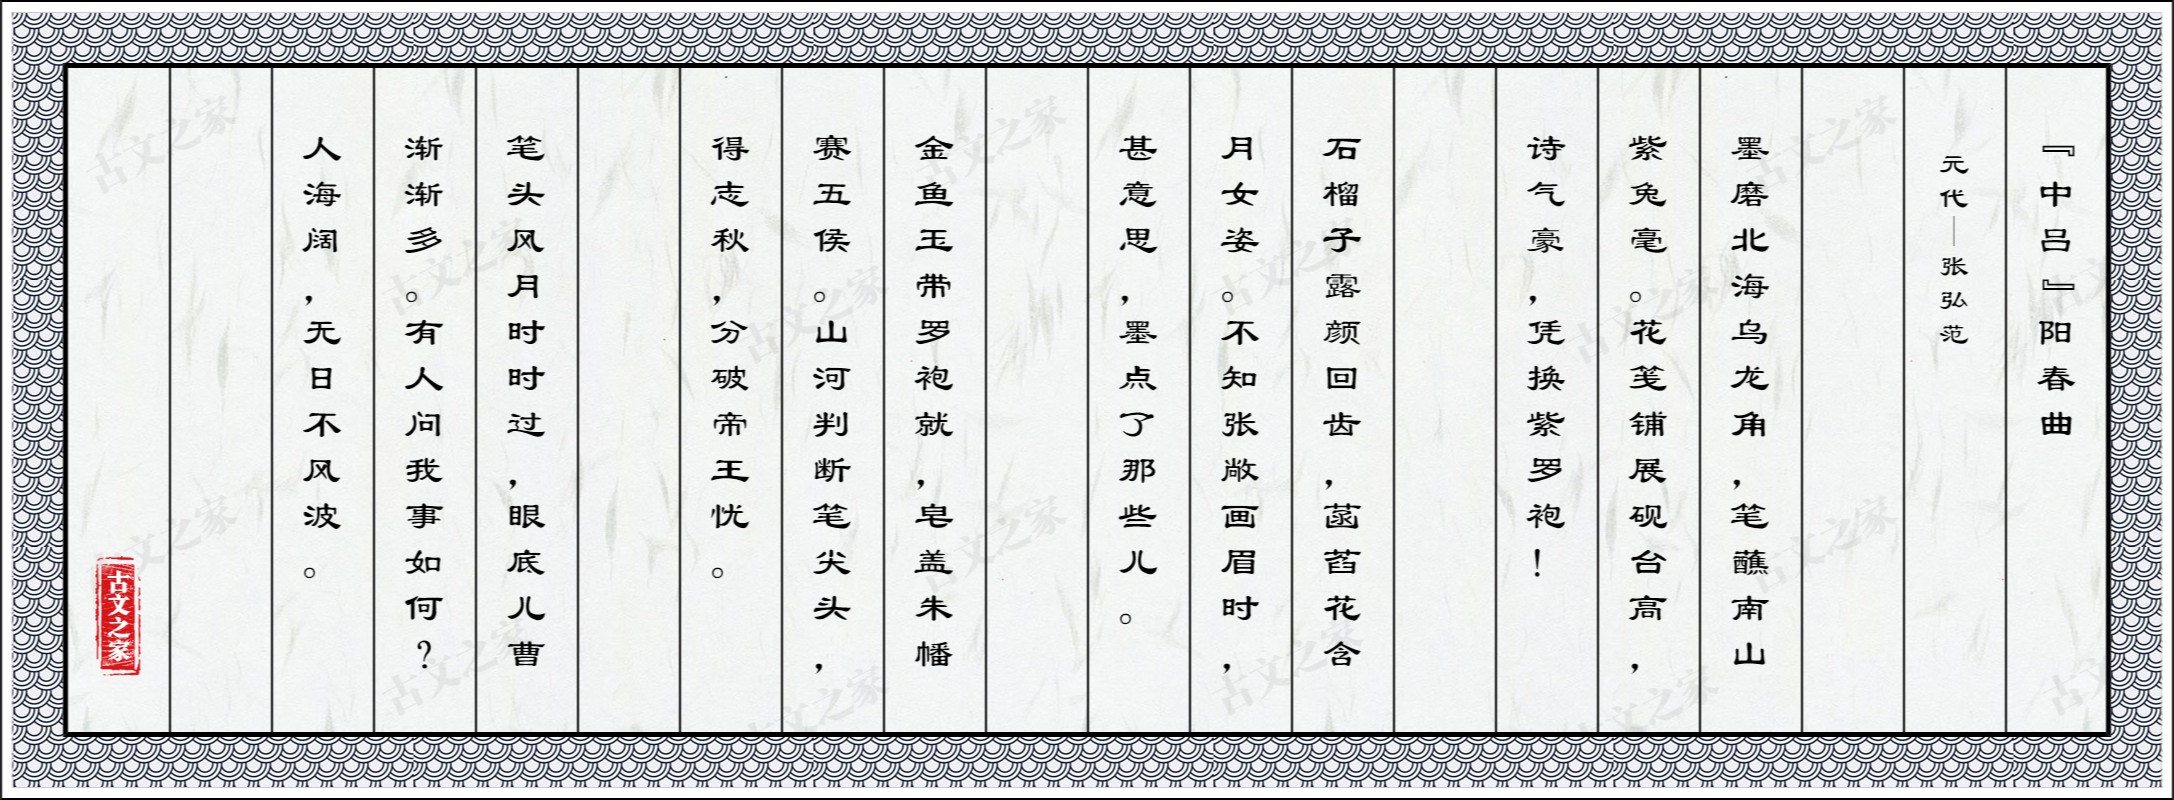 『中吕』阳春曲
元代—张弘范
墨磨北海乌龙角，笔蘸南山
紫兔毫。花笺铺展砚台高，
诗气豪，凭换紫罗袍！
石榴子露颜回齿，菡萏花含
月女姿。不知张敞画眉时，
甚意思，墨点了那些儿。
金鱼玉带罗袍就，皂盖朱幡
赛五侯。山河判断笔尖头，
得志秋，分破帝王忧。
笔头风月时时过，眼底儿曹
渐渐多。有人问我事如何？
人海阔，无日不风波。
古文之家